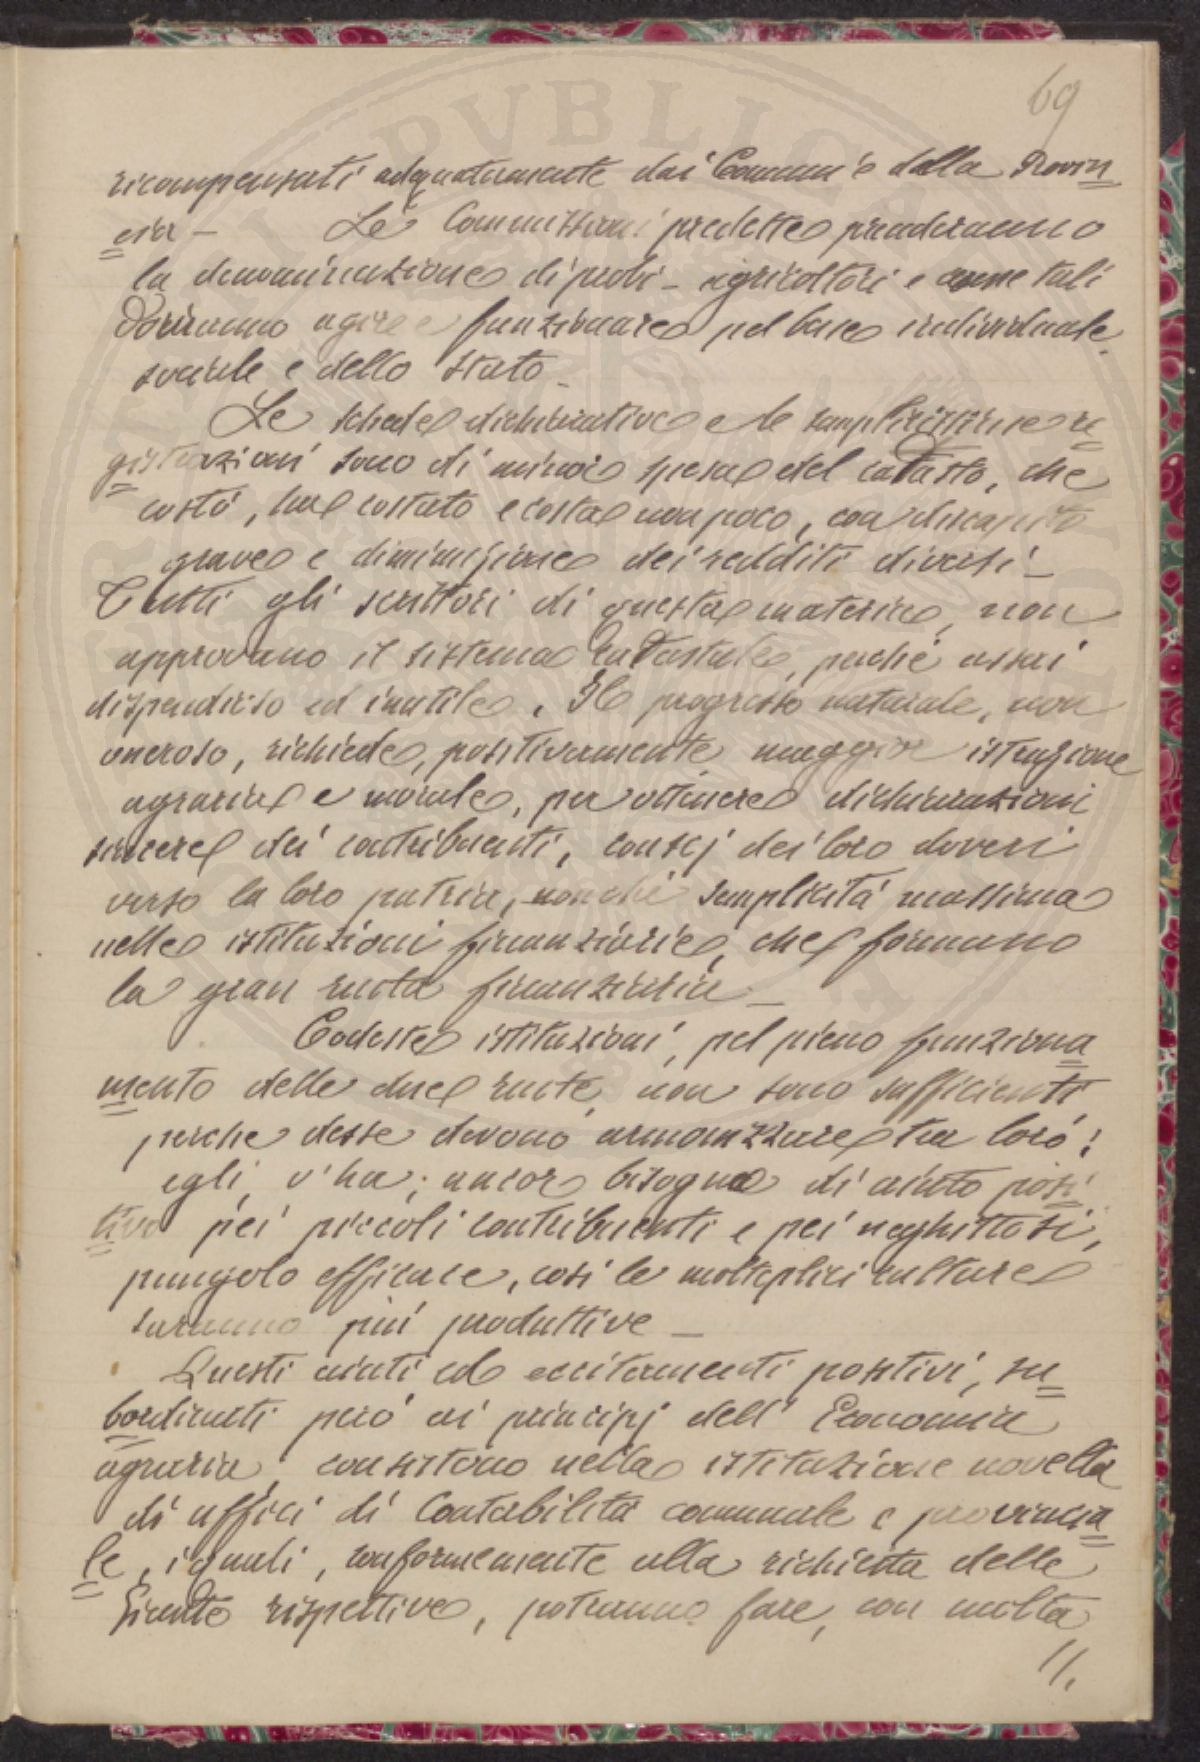 69
ricompensati adequatamente dai Comuni e dalla Provin
cia - Le Commissioni predette prenderanno
la denominazione di probi - agricoltori e come tali
dovranno agire e funzionare pel bene individuale
sociale e dello Stato -
Le schede dichiarative e le semplicissime re
gistrazioni sono di minore spesa del catasto, che
costò, ha costato e costa non poco, con discapito
grave e diminuzione dei redditi diversi -
Tutti gli scrittori di questa materia, non
approvano il sistema catastale, perchè assai
dispendioso ed inutile. Il progresso naturale, non
oneroso, richiede, positivamente maggior istruzione
agraria e morale, per ottenere dichiarazioni
sincere dei contribuenti, conscj dei loro doveri
verso la loro patria, nonchè semplicità massima
nelle istituzioni finanziarie, che formano
la gran ruota finanziaria -
Codeste istituzioni, pel pieno funziona
mento delle due ruote, non sono sufficienti
perche desse devono armonizzare tra loro;
egli v'ha, ancora bisogno di aiuto posi
tivo pei piccoli contribuenti e pei neghittosi,
pungolo efficace, così le molteplici culture
saranno più produttive -
Questi aiuti ed eccitamenti positivi, su
bordinati però ai principj dell' Economia
agraria, consistono nella istituzione novella
di uffici di Contabilità comunale e provincia
le, i quali, conformemente alla richiesta delle
Giunte rispettive, potranno fare, con molta
11.
PVBLICA